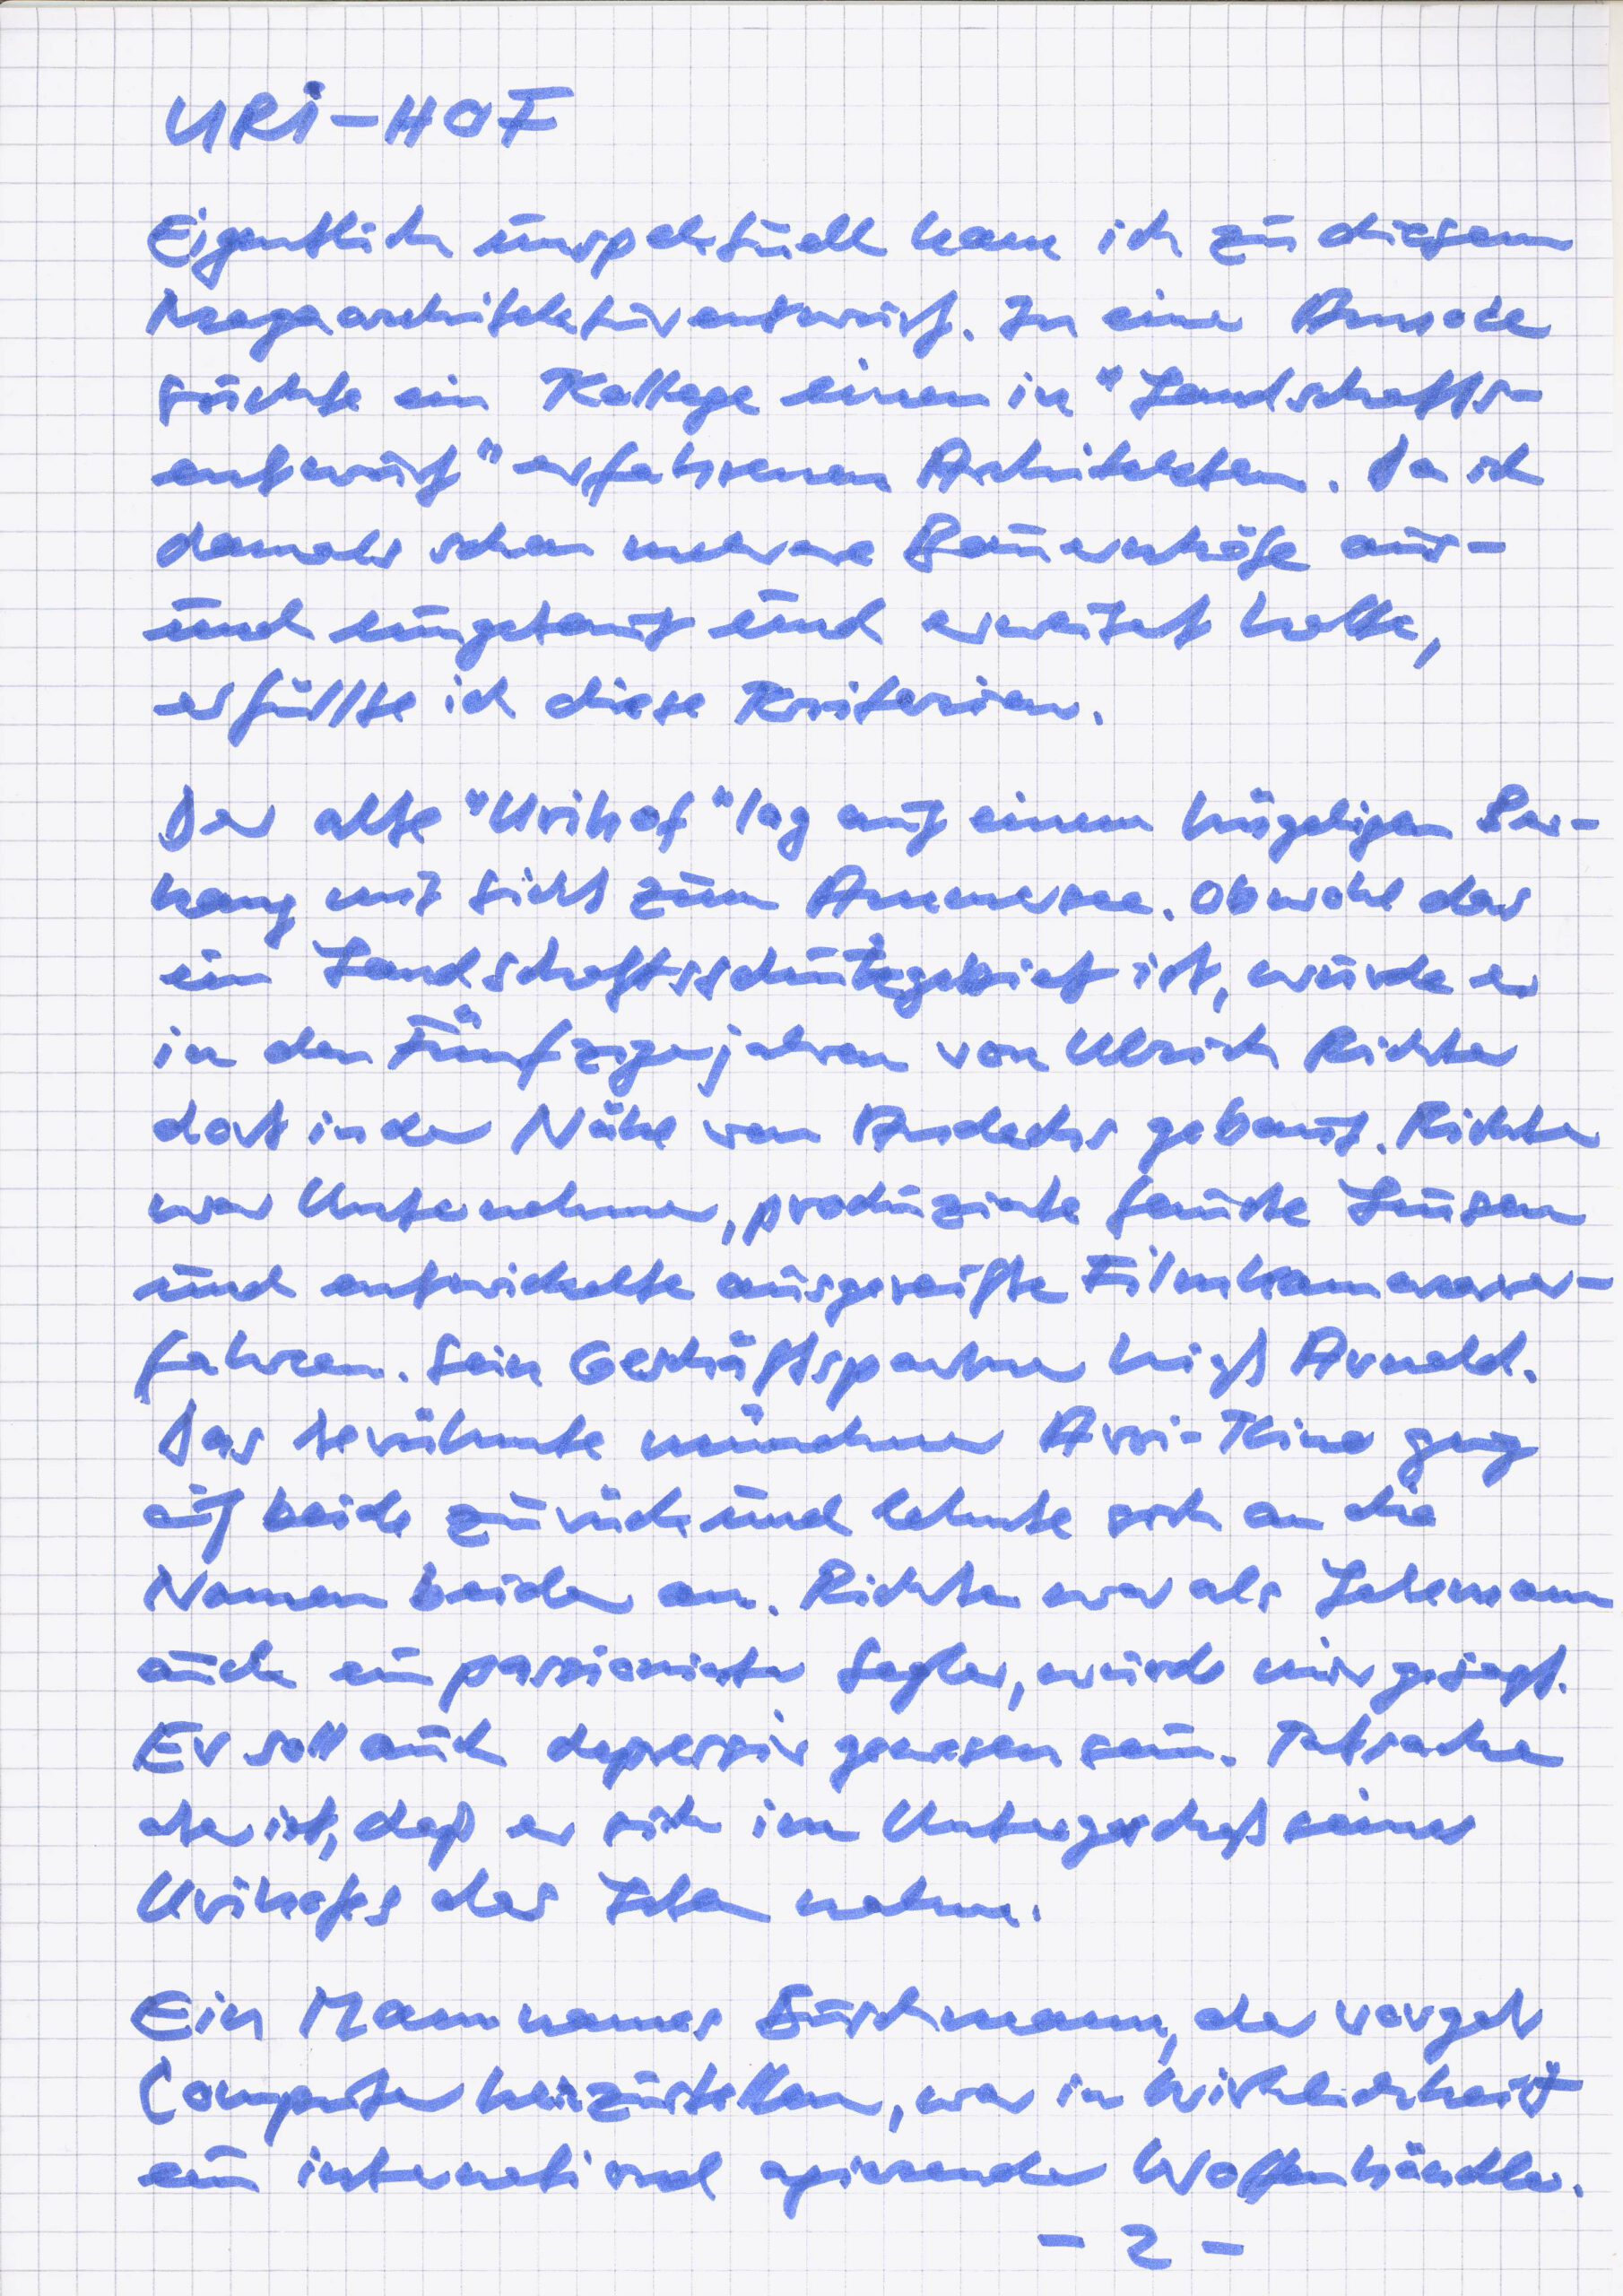 URI-HOF
Eigentlich unspektuell kam ich zu diesem
Megaarchitekturentwurf. In einer Annonce
suchte ein Kollege einen in "Landschafts-
entwurf" erfahrenen Architekten. Da ich
damals schon mehrere Bauernhöfe aus-
und umgebaut und erweitert hatte,
erfüllte ich diese Kriterien.
Der alte "Urihof" lag auf einem hügeligen
hang mit Sicht zum Ammersee. Obwohl das
ein Landschaftsschutzgebiet ist, wurde er
in den Fünfzigerjahren von Ulrich Richter
dort in der Nähe von Andechs gebaut. Richter
war Unternehmer, produzierte Linsen
und entwickelte ausgereifte Filmkameraver-
fahren. Sein Geschäftspartner hieß Arnold.
Das berühmte münchner Arri-Kino ging
auf beide zurück und lehnte sich an die
Namen beider an. Richter war als Lebemann
auch ein passionierter Segler, wurde mir gesagt.
Er soll auch depressiv gewesen sein. Tatsache
aber ist, daß er sich im Untergeschoß seines
Urihofes das Leben nahm.
Ein Mann namens Buschmann, der vorgab
Computer herzustellen, war in Wirklichkeit
ein international agierender Waffenhändler.
- 2 -